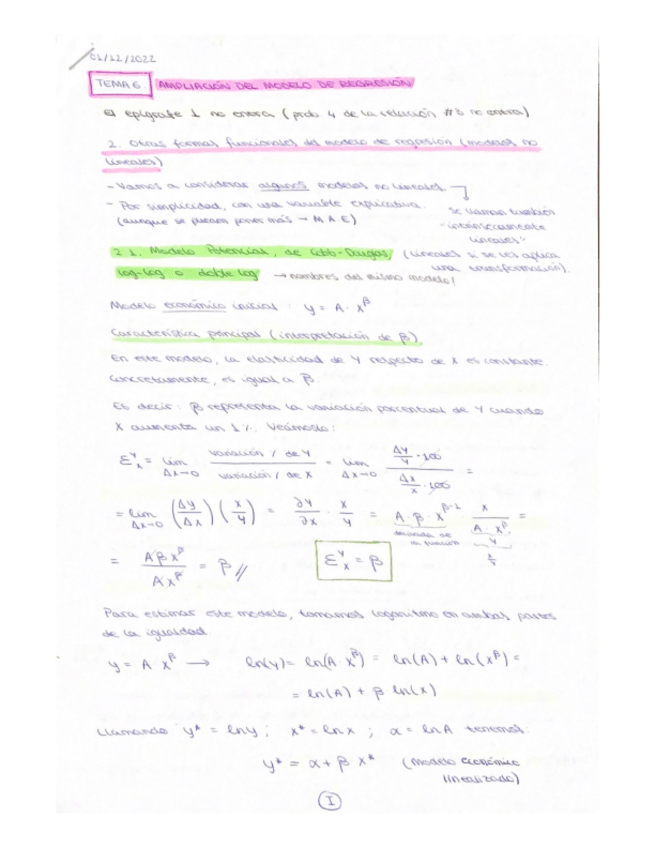 01/12/2022
TEMA 6. AMPLIACIÓN DEL MODELO DE REGRESIÓN
El epígrafe 1 no entra (prob 4 de la relación #3 no entra)
2. Otras formas funcionales del modelo de regresión (modelos no
lineales)
- Vamos a considerar algunos modelos no lineales.
- Por simplicidad, con una variable explicativa.
(aunque se pueden poner más → M A E)
se llaman también
"intrínsecamente
lineales"
(lineales si se les aplica
una transformación).
2.1. Modelo Potencial, de Cobb-Douglas,
log-log o doble log → nombres del mismo modelo!
Modelo económico inicial : y = A · x^β
Característica principal (interpretación de β)
En este modelo, la elasticidad de Y respecto de X es constante.
Concretamente, es igual a β.
Es decir: β representa la variación porcentual de Y cuando
X aumenta un 1%. Veámoslo:
Ɛ^Y_x = lim Δx→0 variación % de Y / variación % de X = lim Δx→0 (ΔY/Y · 100) / (Δx/x · 100) =
= lim Δx→0 (Δy/Δx) (x/y) = ∂Y/∂X · x/y = A · β · x^β-1 · x / A · x^β =
derivada de
la función
y
x/y
= Aβx^β / Ax^β = β //
Ɛ^Y_x = β
Para estimar este modelo, tomamos logaritmo en ambas partes
de la igualdad
y = A · x^β → ln(y) = ln(A · x^β) = ln(A) + ln(x^β) =
= ln(A) + β ln(x)
Llamando y* = ln y ; x* = ln x ; α = ln A tenemos:
y* = α + β x* (modelo económico
linealizado)
I